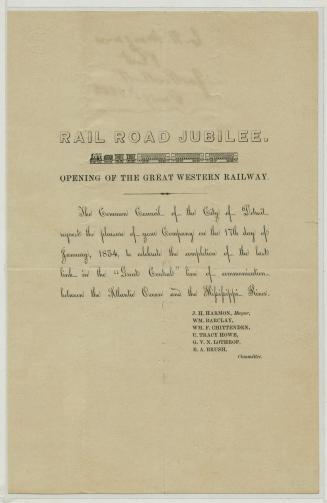 RAIL ROAD JUBILEE.
OPENING OF THE GREAT WESTERN RAILWAY.
The Common Council of the City of Detroit
request the pleasure of your Company on the 17th day of
January, 1854, to celebrate the completion of the last
link in the "Grand Central" line of communication
between the Atlantic Ocean and the Mississippi River.
J. H. HARMON, Mayor,
WM. BARCLAY,
WM. F. CHITTENDEN,
U. TRACY HOWE,
G. V. N. LOTHROP,
E. A. BRUSH,
Committee.